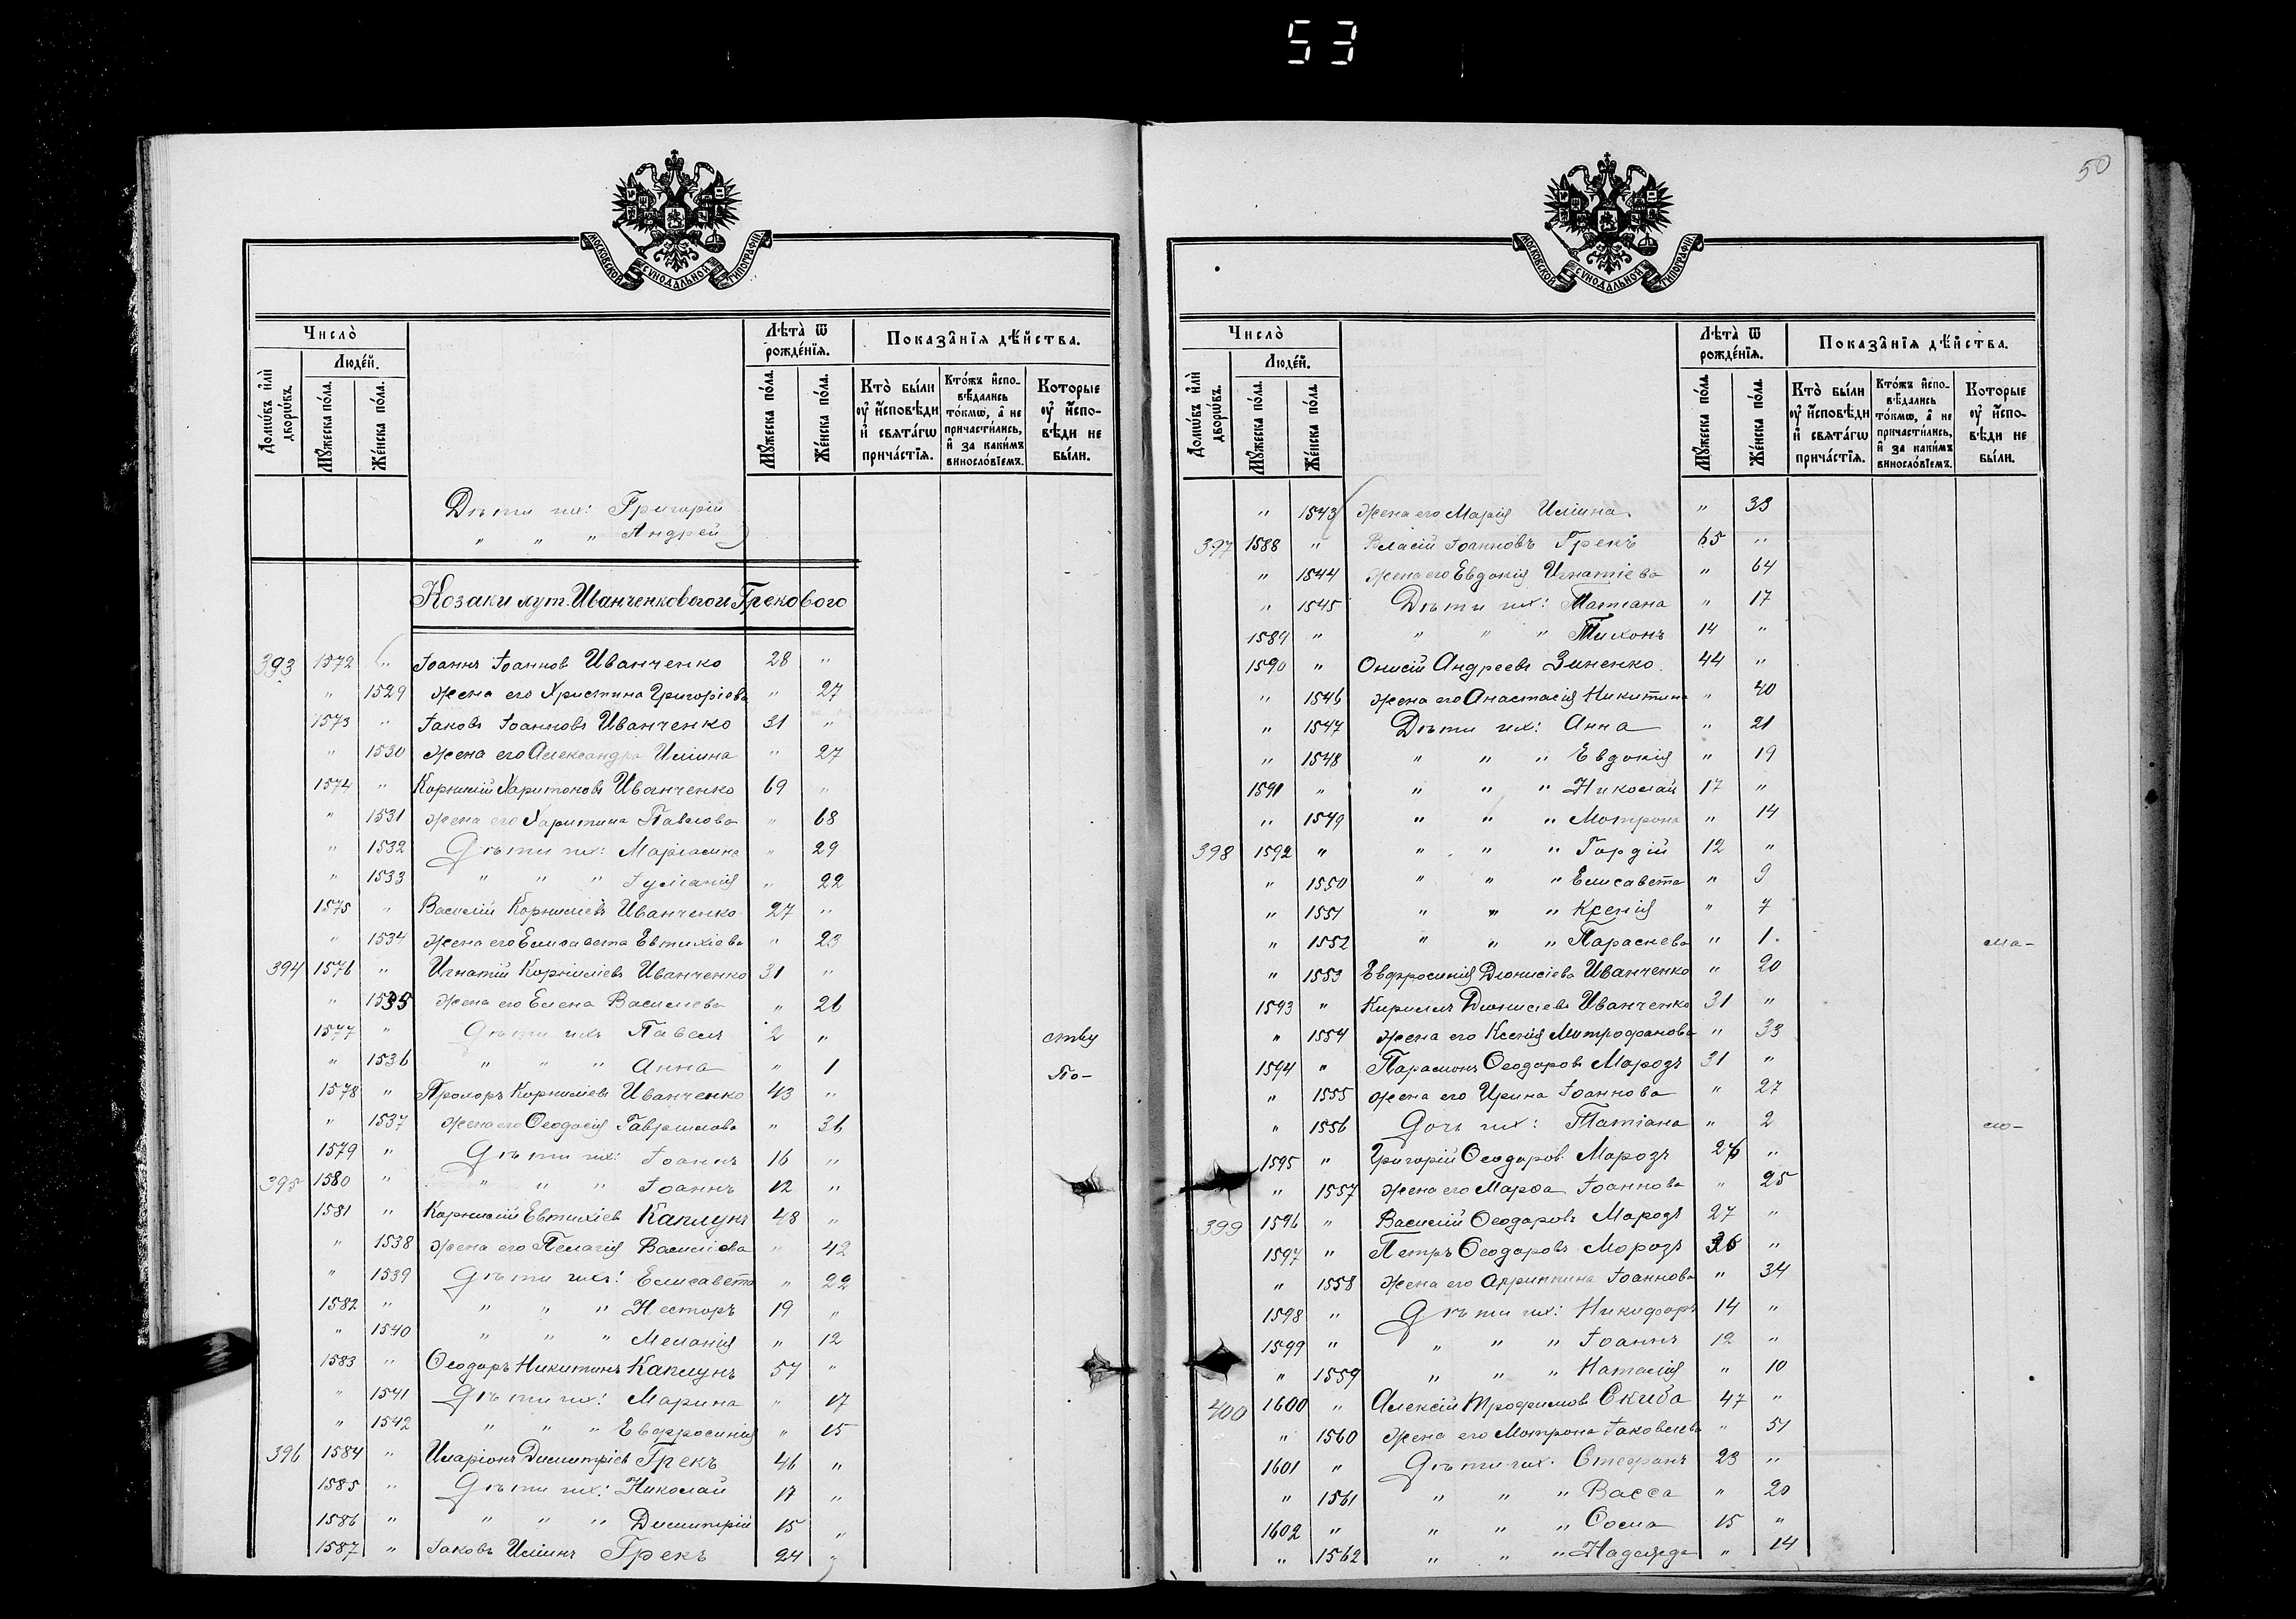 53
50
МОСКОВСКОЙ СѴНОДАЛЬНОЙ ТИПОГРАФІИ
Число̀
Людей.
Домѡвъ и҆лѝ дворѡвъ.
Мꙋжеска по́ла.
Же́нска по́ла.
Лѣта̀ ѿ рожде́нїѧ.
Мꙋжеска по́ла.
Же́нска по́ла.
Показа̑нїѧ дѣ́йства.
Кто̀ бы́ли ᲂу҆ и҆сповѣди и҆ свѧта́гѡ прича́стїѧ.
Кто́жъ и҆спо-вѣдались то́кмѡ, а҆ не причасти́лись, и҆ за каки́мъ винослόвїемъ.
Которые ᲂу҆ и҆спо-вѣди не бы́ли.
Дѣти их: Григорій
" " " Андрей
Козаки хут. Иванченкового и Грекового
393 1572 " Іоаннъ Іоаннов Иванченко 28 "
" 1529 жена его Христина Григоріева " 27
1573 " Іаковъ Іоанновъ Иванченко 31 "
" 1530 Жена его Александра Иліина " 27
1574 " Корнилій Харитоновъ Иванченко 69 "
" 1531 жена его Харитина Павлова " 68
" 1532 Дѣти их: " 29
" 1533 " " " Іуліанія " 22
1575 " Василій Корниліевъ Иванченко 27 "
" 1534 жена его Елисавета Евтихіева " 23
394 1576 " Игнатій Корниліевъ Иванченко 31 "
" 1535 жена его Елена Василиева " 26
1577 " Дѣти ихъ Павелъ 2 " ству
" 1536 " " " Анна " 1 По-
1578 " Прохоръ Корниліевъ Иванченко 43 "
" 1537 жена его Ѳеодосія Гавриилова " 36
1579 " Дѣти их: Іоаннъ 16 "
395 1580 " " " " Іоаннъ 12 "
1581 " Корнилій Евтихіев Каплунъ 48 "
" 1538 жена его Пелагія Василіева " 42
" 1539 Дѣти их: Елисавета " 22
1582 " " " " Несторъ 19 "
" 1540 " " " Меланія " 12
1583 " Ѳеодоръ Никитинъ Каплунъ 57 "
" 1541 Дѣти их: Марина " 17
" 1542 " " " Евфросинія " 15
396 1584 " Иларіонъ Димитріев Грекъ 46 "
1585 " Дѣти их: Николай 17 "
1586 " " " " Димитрій 15 "
1587 " Іаковъ Иліинъ Грекъ 24 "
МОСКОВСКОЙ СѴНОДАЛЬНОЙ ТИПОГРАФІИ
Число̀
Людей.
Домѡвъ и҆лѝ дворѡвъ.
Мꙋжеска по́ла.
Же́нска по́ла.
Лѣта̀ ѿ рожде́нїѧ.
Мꙋжеска по́ла.
Же́нска по́ла.
Показа̑нїѧ дѣ́йства.
Кто̀ бы́ли ᲂу҆ и҆сповѣди и҆ свѧта́гѡ прича́стїѧ.
Кто́жъ и҆спо-вѣдались то́кмѡ, а҆ не причасти́лись, и҆ за каки́мъ винослόвїемъ.
Которые ᲂу҆ и҆спо-вѣди не бы́ли.
" 1543 Жена его Марія Иліина " 33
397 1588 " Власій Іоанновъ Грекъ 65 "
" 1544 жена его Евдокія Игнатіева " 64
" 1545 Дѣти их: Татіана " 17
1584 " " " " Тихонъ 14 "
1590 " Онисій Андреевъ Зиненко 44 "
" 1546 жена его Анастасія Никитина " 40
" 1547 Дѣти их: Анна " 21
" 1548 " " " Евдокія " 19
1591 " " " " Николай 17 "
" 1549 " " " Мотрона " 14
398 1592 " " " " Гордій 12 "
" 1550 " " " Елисавета " 9
" 1551 " " " Ксенія " 7
" 1552 " " " Параскева " 1. ма-
" 1553 Евфросинія Діонисіева Иванченко " 20
1593 " Кириллъ Діонисіевъ Иванченко 31 "
" 1554 жена его Ксенія Митрофанова " 33
1594 " Парамонъ Ѳеодоровъ Морозъ 31 "
" 1555 жена его Ирина Іоаннова " 27
" 1556 Дочь их: Татіана " 2 ло-
1595 " Григорій Ѳеодоров Морозъ 26 "
" 1557 жена его Марѳа Іоаннова " 25
399 1596 " Василій Ѳеодоровъ Морозъ 27 "
1597 " Петръ Ѳеодоровъ Морозъ 36 "
" 1558 жена его Агриппина Іоаннова " 34
1598 " Дѣти их: Никифоръ 14 "
1599 " " " " Іоаннъ 12 "
" 1559 " " " Наталія " 10
400 1600 " Алексій Трофимов Скиба 47 "
" 1560 жена его Мотрона Іаковлева " 51
1601 " Дѣти их: Стефанъ 23 "
" 1561 " " " Васса " 20
1602 " " " " Созма 15 "
" 1562 " " " Надежда " 14